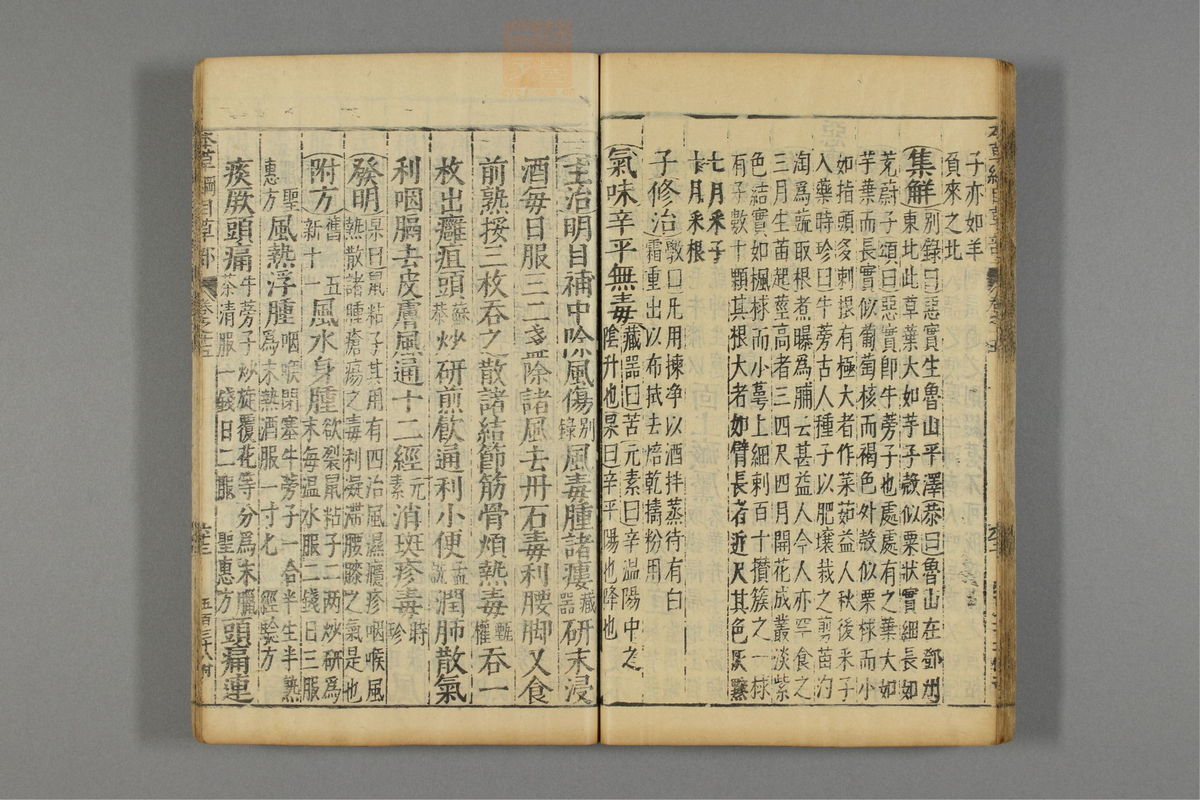 子亦如羊
負來之比
集解別錄曰惡實生魯山平澤恭曰魯山在鄧州
東北此草葉大如芋子殼似栗狀實細長如
茺蔚子頌曰惡實即牛蒡子也處處有之葉大如
芋葉而長實似葡萄核而褐色外殼似栗梂而小
如指頭多刺根有極大者作菜茹益人秋後采子
入藥時珍曰牛蒡古人種子以肥壤栽之剪苗汋
淘為蔬取根煮曝為脯云甚益人今人亦罕食之
三月生苗起莖高者三四尺四月開花成叢淡紫
色結實如楓梂而小萼上細刺百十攢簇之一梂
有子數十顆其根大者如臂長者近尺其色灰黲
七月采子
十月采根
子修治斆曰凡用揀净以酒拌蒸待有白
霜重出以布拭去焙乾擣粉用
氣味辛平無毒藏器曰苦元素曰辛溫陽中之
陰升也杲曰辛平陽也降也
主治明目補中除風傷別錄風毒腫諸瘻藏器研末浸
酒每日服三二盞除諸風去丹石毒利腰脚又食
前熟挼三枚吞之散諸結節筋骨煩熱毒甄權吞一
枚出癰疽頭蘇恭炒研煎飲通利小便孟詵潤肺散氣
利咽膈去皮膚風通十二經元素消斑疹毒時珍
發明杲曰鼠粘子其用有四治風濕癮疹咽喉風
熱散諸腫瘡瘍之毒利凝滯腰膝之氣是也
附方舊五新十一風水身腫欲裂鼠粘子二兩炒研為
末每溫水服二錢日三服
聖惠方風熱浮腫咽喉閉塞牛蒡子一合半生半熟
為末熱酒服一寸匕經驗方
痰厥頭痛牛蒡子炒旋覆花等分為末臘
茶清服一錢日二服聖惠方頭痛連
本草綱目草部